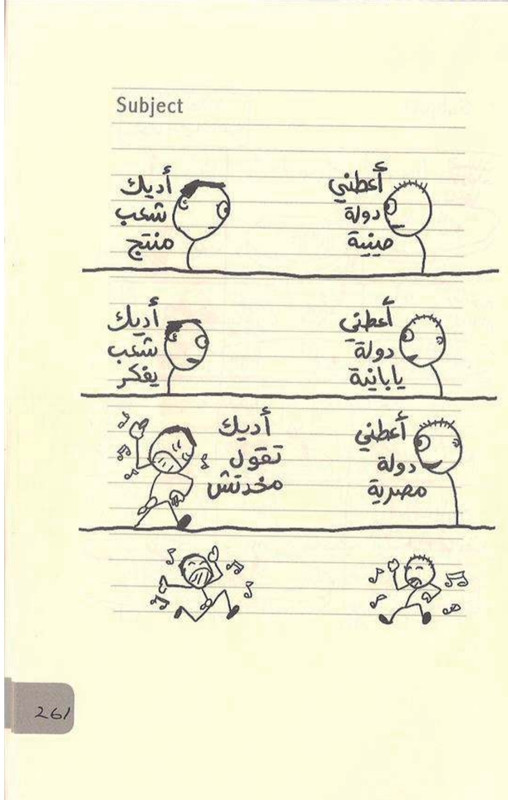 Subject
أعطني
دولة
صينية
أديك
شعب
منتج
أعطني
دولة
يابانية
أديك
شعب
يفكر
أعطني
دولة
مصرية
أديك
تقول
مخدتش
261